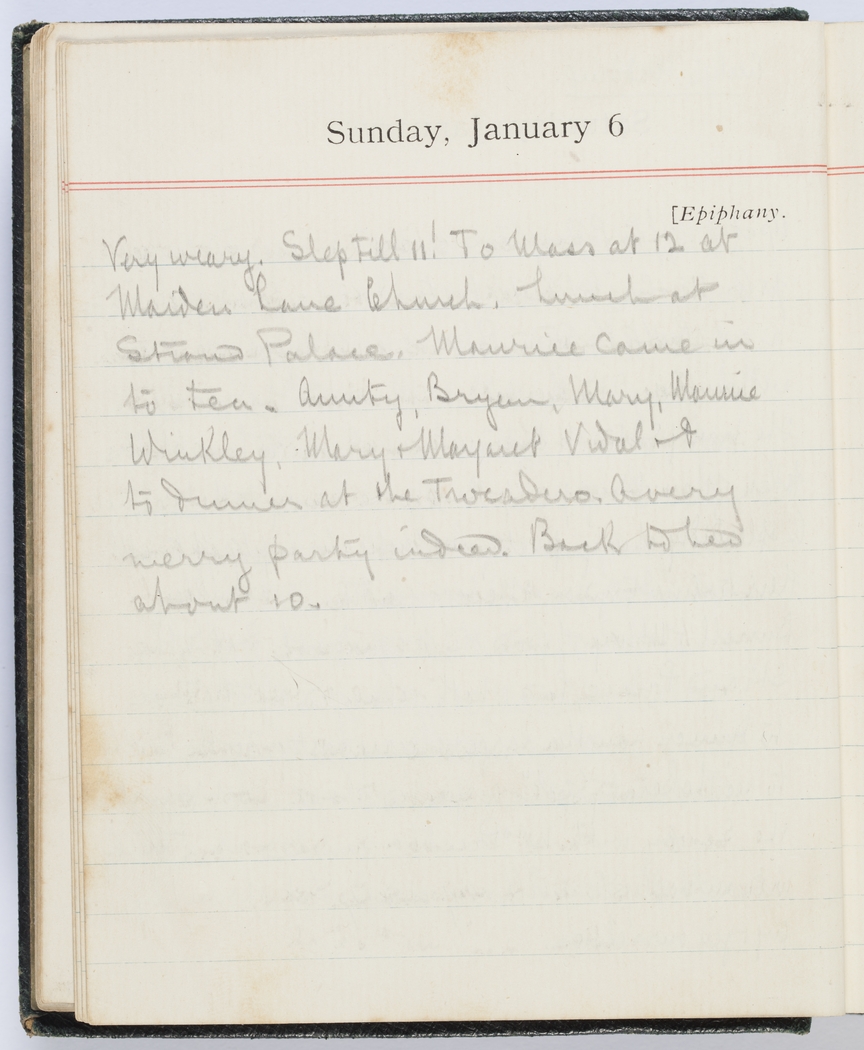 Sunday, January 6
[Epiphany.
Very weary. Slep till 11! To Mass at 12 at
Maiden Lane Church. Lunch at
Strand Palace. Maurice came in
to tea. Aunty, Bryan, Mary, Maurice
Winkley, Mary & Margaret Vidal & I
to dinner at the Trocadero. A very
merry party indeed. Back to bed
about 10.